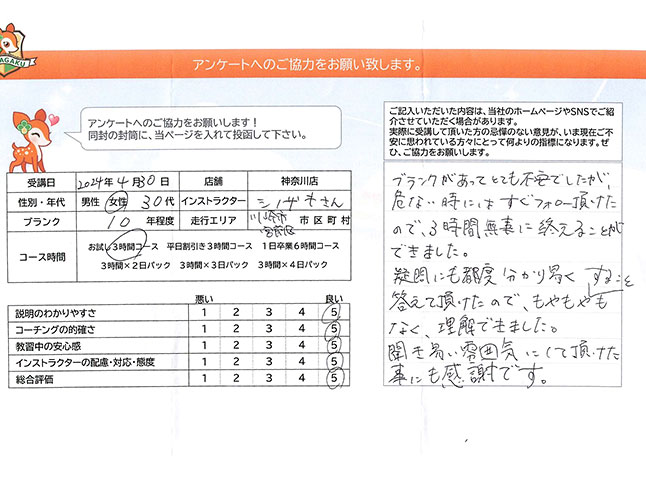 AGAKU
アンケートへのご協力をお願い致します。
アンケートへのご協力をお願いします!
同封の封筒に、当ページを入れて投函して下さい。
受講日 2024年4月30日 店舗 神奈川店
性別・年代 男性 女性 30代 インストラクター シノザキさん
ブランク 10年程度 走行エリア 川崎市宮前区 市区町村
コース時間 お試し3時間コース 平日割引き3時間コース 1日卒業6時間コース
3時間×2日パック 3時間×3日パック 3時間×4日パック
悪い 良い
説明のわかりやすさ 1 2 3 4 5
コーチングの的確さ 1 2 3 4 5
教習中の安心感 1 2 3 4 5
インストラクターの配慮・対応・態度 1 2 3 4 5
総合評価 1 2 3 4 5
ご記入いただいた内容は、当社のホームページやSNSでご紹
介させていただく場合があります。
実際に受講して頂いた方の忌憚のない意見が、いま現在ご不
安に思われている方々にとって何よりの指標になります。ぜ
ひ、ご協力をお願いします。
ブランクがあってとても不安でしたが、
危ない時にはすぐフォロー頂けた
ので、3時間無事に終えることが
できました。
疑問にも都度分かり易く
答えて頂けたので、もやもやも
なく、理解できました。
聞き易い雰囲気にして頂けた
事にも感謝です。